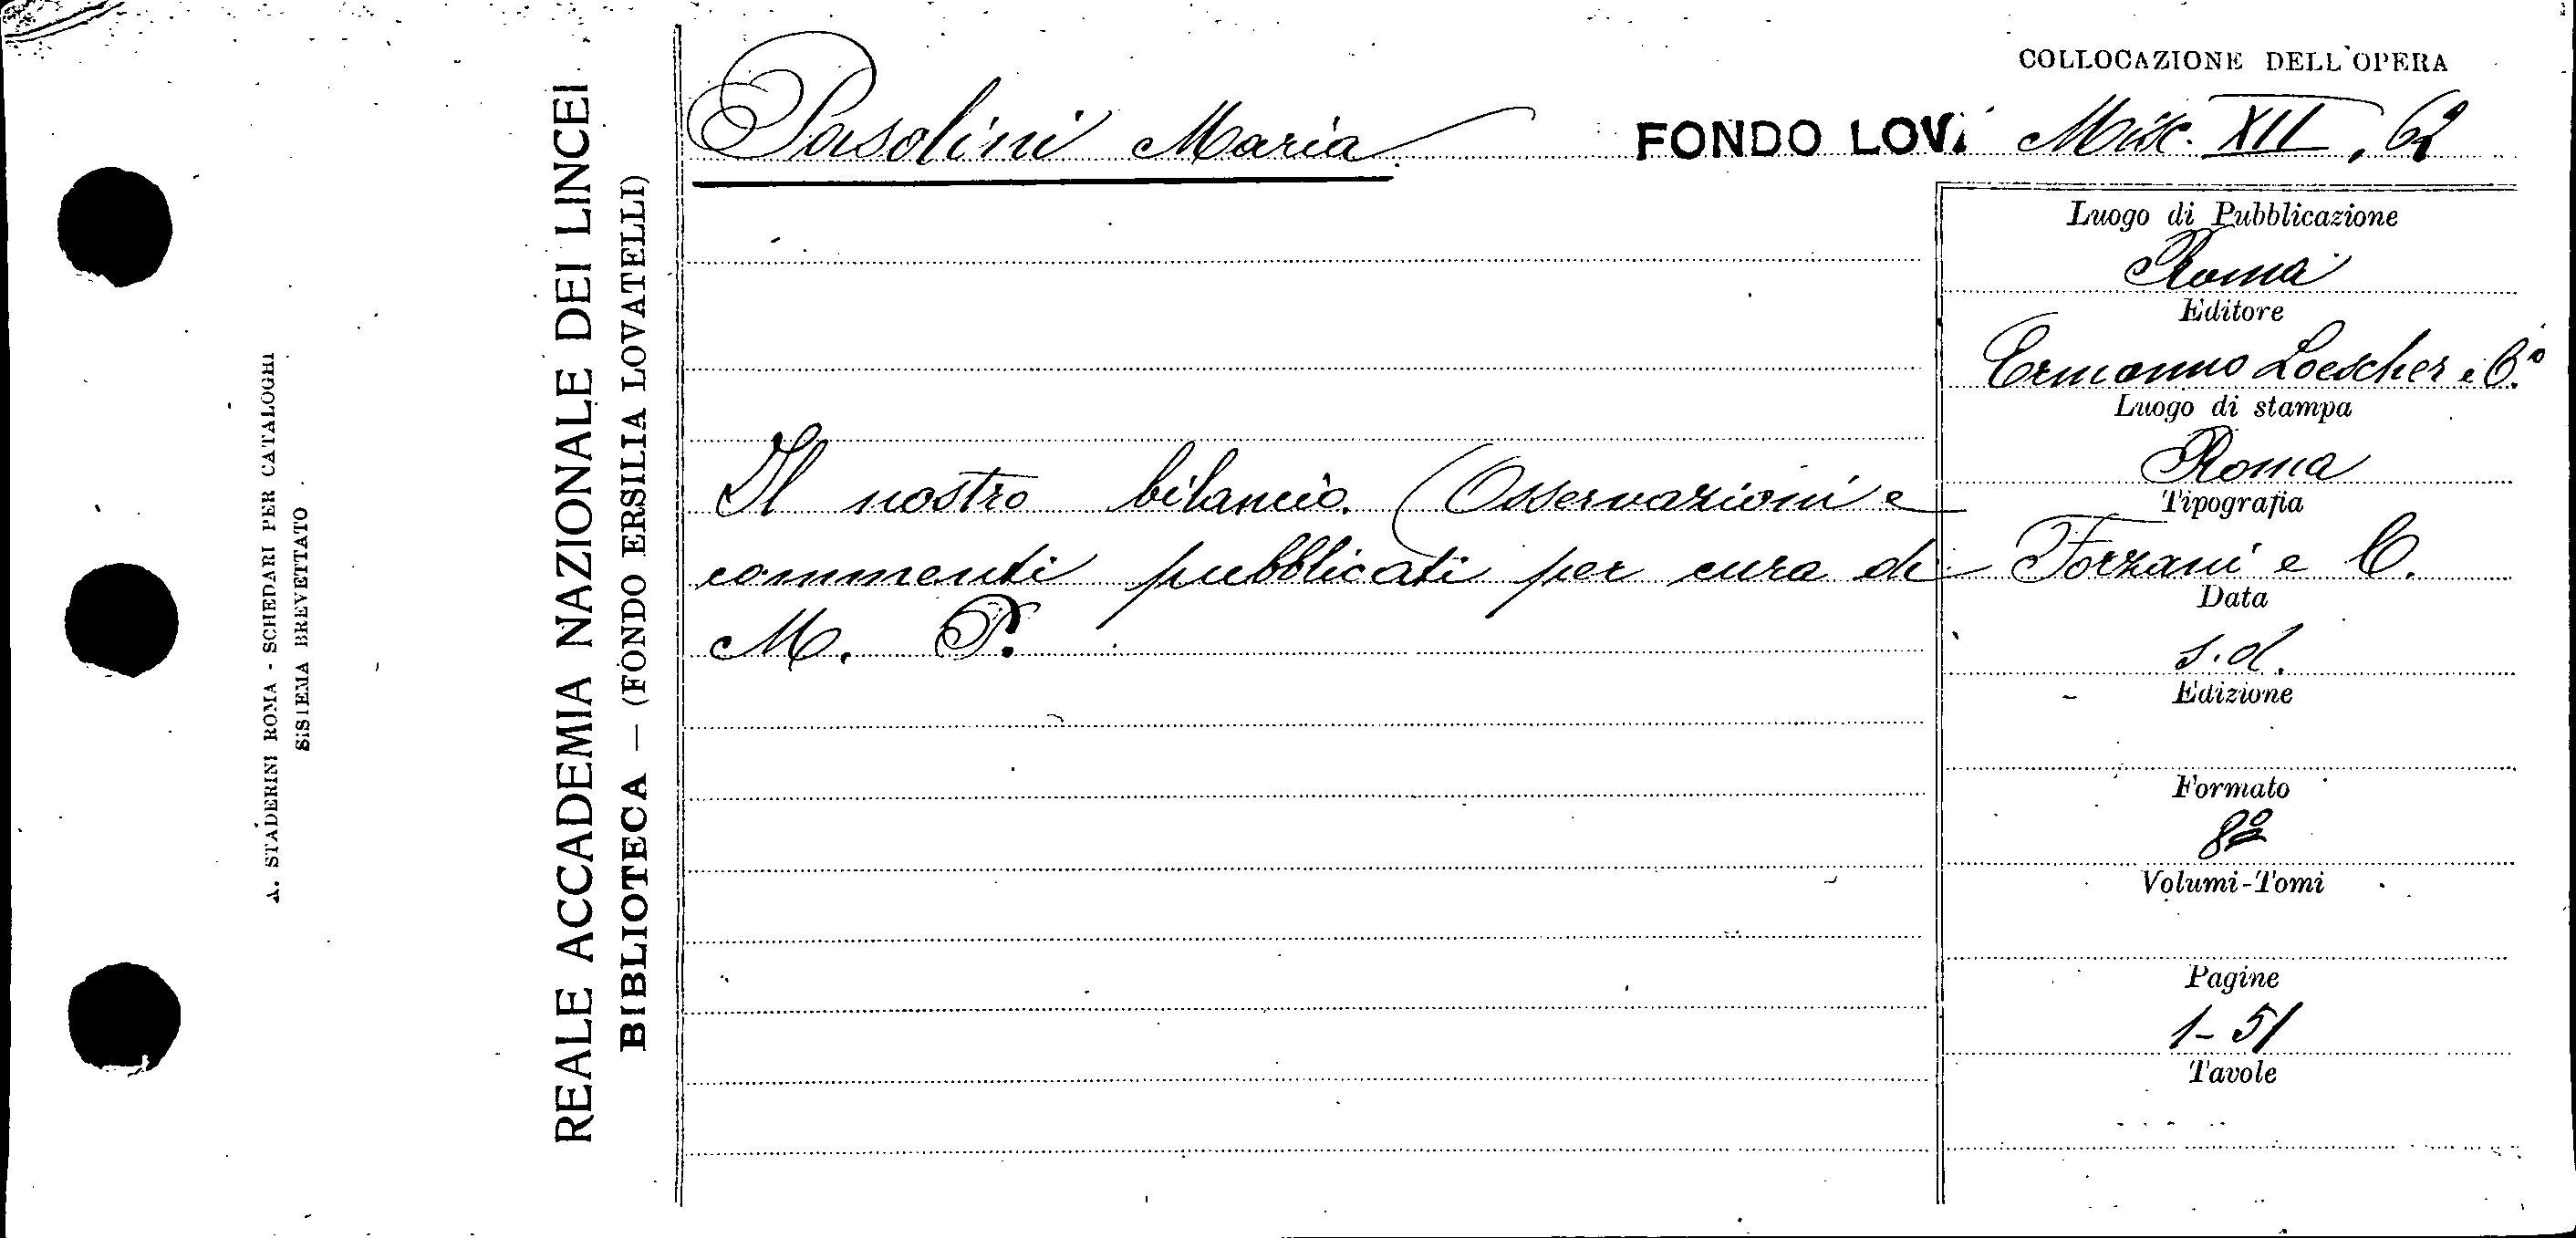 A. STADERINI ROMA - SCHEDARI PER CATALOGHI
SISTEMA BREVETTATO
REALE ACCADEMIA NAZIONALE DEI LINCEI
BIBLIOTECA — (FONDO ERSILIA LOVATELLI)
COLLOCAZIONE DELL'OPERA
Pasolini Maria FONDO LOV. Misc. XII, 62
Il nostro bilancio. (Osservazioni e
commenti pubblicati per cura di
M. P.
Luogo di Pubblicazione
Roma
Editore
Ermanno Loescher e C.º
Luogo di stampa
Roma
Tipografia
Forzani e C.
Data
s.d.
Edizione
Formato
8º
Volumi-Tomi
Pagine
1-51
Tavole